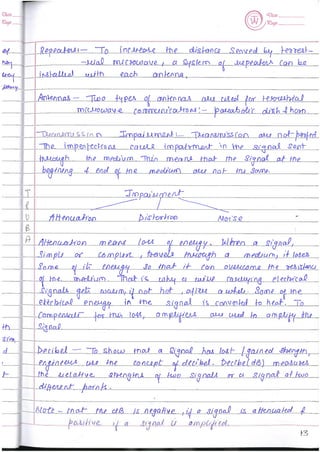 Repeaters:- To increase the distance served by terrest-
-rial microwave, a system of repeaters can be
installed with each antenna.
Antennas - Two types of antennas are used for terrestrial
microwave communications:- parabolic dish & horn
Transmission Impairment:- Transmission are not perfect.
The imperfections cause impairment in the signal sent
through the medium. This means that the signal at the
beginning & end of the medium are not the same.
Impairment
Attenuation Distortion Noise
Attenuation means loss of energy. When a signal,
simple or complex, travels through a medium, it loses
some of its energy so that it can overcome the resistance
of the medium. That is why a wire carrying electrical
signals gets warm, if not hot, after a while. Some of the
electrical energy in the signal is converted to heat. To
compensate for this loss, amplifiers are used to amplify the
signal.
Decibel - To show that a signal has lost / gained strength,
engineers use the concept of decibel. Decibel (dB) measures
the relative strengths of two signals or a signal at two
different points.
Note - that the dB is negative, if a signal is attenuated &
positive if a signal is amplified.
13